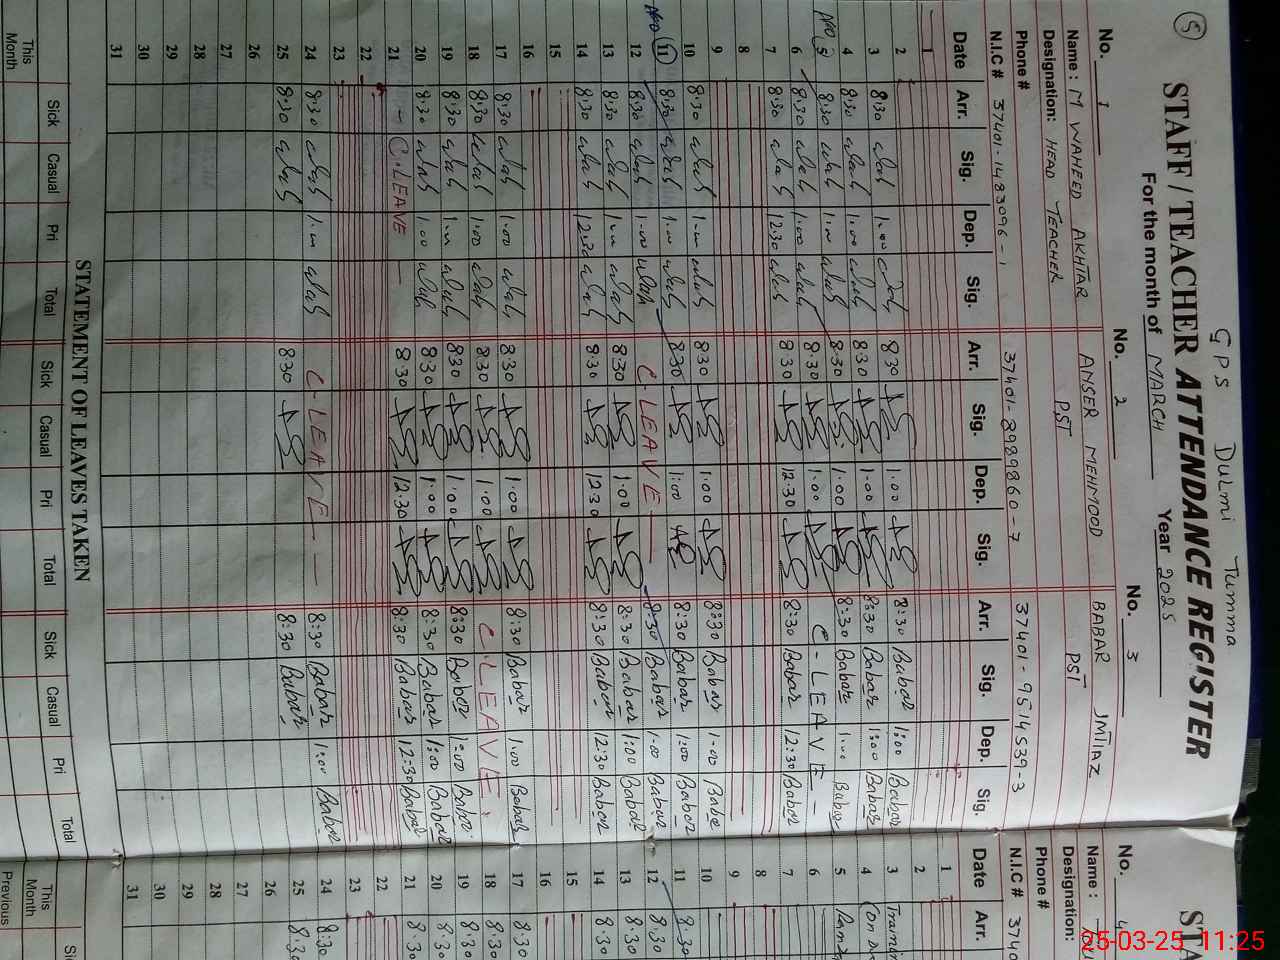 5
GPS DULMI TUMMA
STAFF / TEACHER ATTENDANCE REGISTER
For the month of MARCH Year 2025
No. 1 No. 2 No. 3
Name : M WAHEED AKHTAR ANSER MEHMOOD BABAR IMTIAZ
Designation: HEAD TEACHER PST PST
Phone #
N.I.C # 37401-1483096-1 37401-8989860-7 37401-9514539-3
Date Arr. Sig. Dep. Sig. Arr. Sig. Dep. Sig. Arr. Sig. Dep. Sig.
1
2
3 8:30 1:00 8:30 1:00 8:30 Babar 1:00 Babar
4 8:30 1:00 8:30 1:00 8:30 Babar 1:00 Babar
5 8:30 1:00 8:30 1:00 8:30 Babar 1:00 Babar
6 8:30 1:00 8:30 1:00 C-LEAVE
7 8:30 12:30 8:30 12:30 8:30 Babar 12:30 Babar
8
9
10 8:30 1:00 8:30 1:00 8:30 Babar 1:00 Babar
11 8:30 1:00 8:30 1:00 8:30 Babar 1:00 Babar
12 8:30 1:00 C-LEAVE 8:30 Babar 1:00 Babar
13 8:30 1:00 8:30 1:00 8:30 Babar 1:00 Babar
14 8:30 12:30 8:30 12:30 8:30 Babar 12:30 Babar
15
16
17 8:30 1:00 8:30 1:00 8:30 Babar 1:00 Babar
18 8:30 1:00 8:30 1:00 C-LEAVE
19 8:30 1:00 8:30 1:00 8:30 Babar 1:00 Babar
20 8:30 1:00 8:30 1:00 8:30 Babar 1:00 Babar
21 C-LEAVE 8:30 12:30 8:30 Babar 12:30 Babar
22
23
24 8:30 1:00 C-LEAVE 8:30 Babar 1:00 Babar
25 8:30 8:30 8:30 Babar
26
27
28
29
30
31
STATEMENT OF LEAVES TAKEN
Sick Casual Pri Total Sick Casual Pri Total Sick Casual Pri Total
This Month
STA
No. 4
Name :
Designation:
Phone #
N.I.C # 3740
Date Arr.
1
2
3
4
5
6
7
8
9
10
11 8:30
12 8:30
13 8:30
14 8:30
15
16
17 8:30
18 8:30
19 8:30
20 8:30
21 8:30
22
23
24 8:30
25 8:30
26
27
28
29
30
31
This Month
Previous
25-03-25 11:25